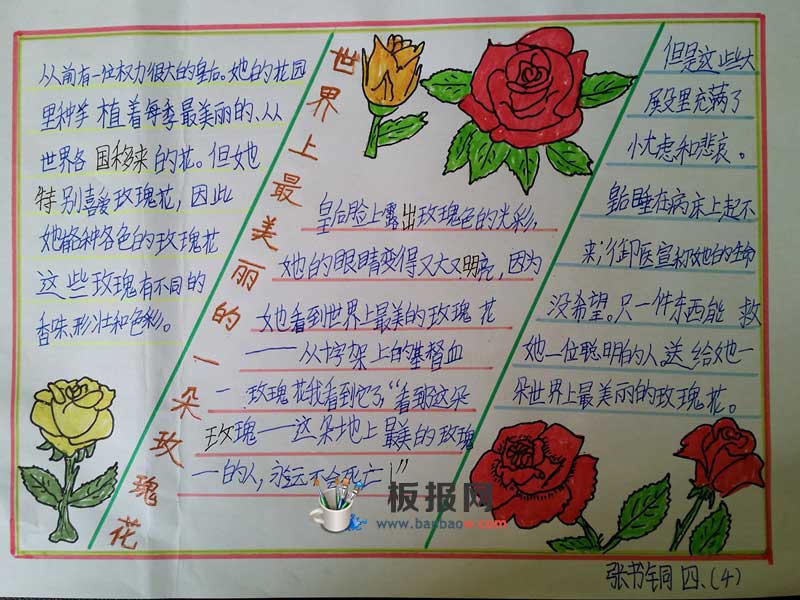 世界上最美丽的一朵玫瑰花
从前有一位权力很大的皇后。她的花园
里种着植着每季最美丽的、从
世界各国移来的花。但她也
特别喜爱玫瑰花，因此
她能种各色的玫瑰花
这些玫瑰有不同的
香味、形壮和色彩。
皇后脸上露出玫瑰色的光彩，
她的眼睛变得又大又明亮，因为
她看到世界上最美的玫瑰花
——从十字架上的基督血
一玫瑰花我看到它了，“看到这朵
玫瑰——这朵地上最美的玫瑰
一的人，永远不会死亡！”
但是这些大
殿里充满了
忧虑和悲哀。
皇后睡在病床上起不
来；御医宣称她的生命
没希望。只一件东西能救
她一位聪明的人，送给她一
朵世界上最美丽的玫瑰花。
板报网
www.banbaow.com
张书铜 四、（4）